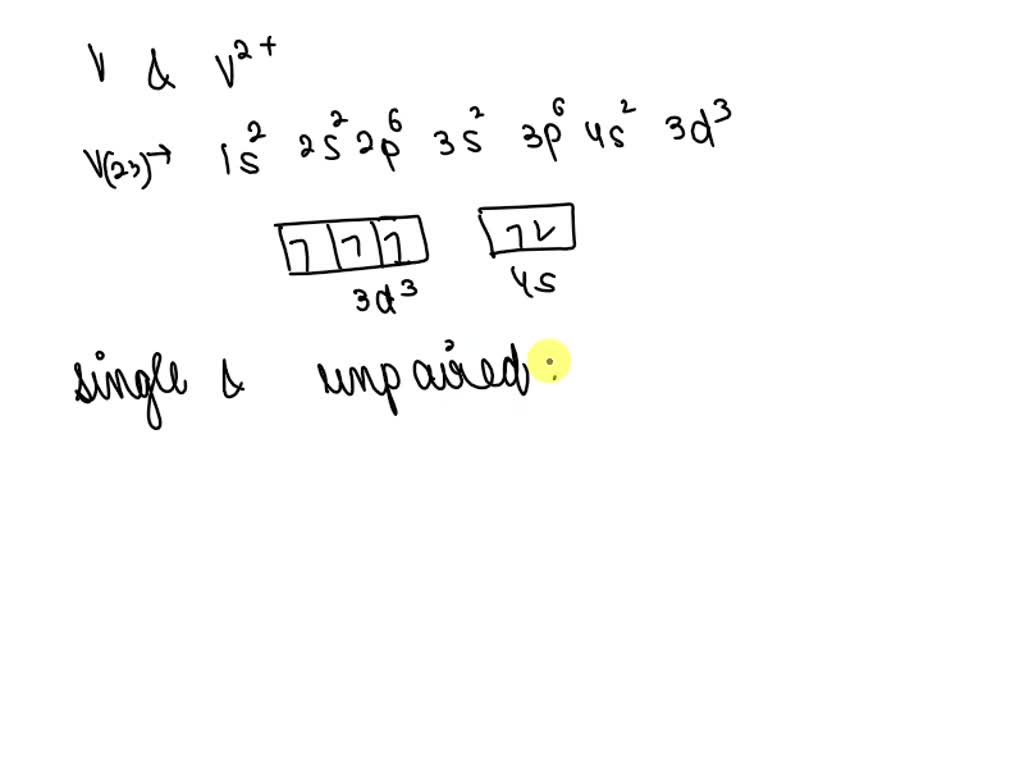 V & V²⁺
V(23)→ 1s² 2s² 2p⁶ 3s² 3p⁶ 4s² 3d³
1 1 1 1 V
3d³ 4s
single & unpaired :